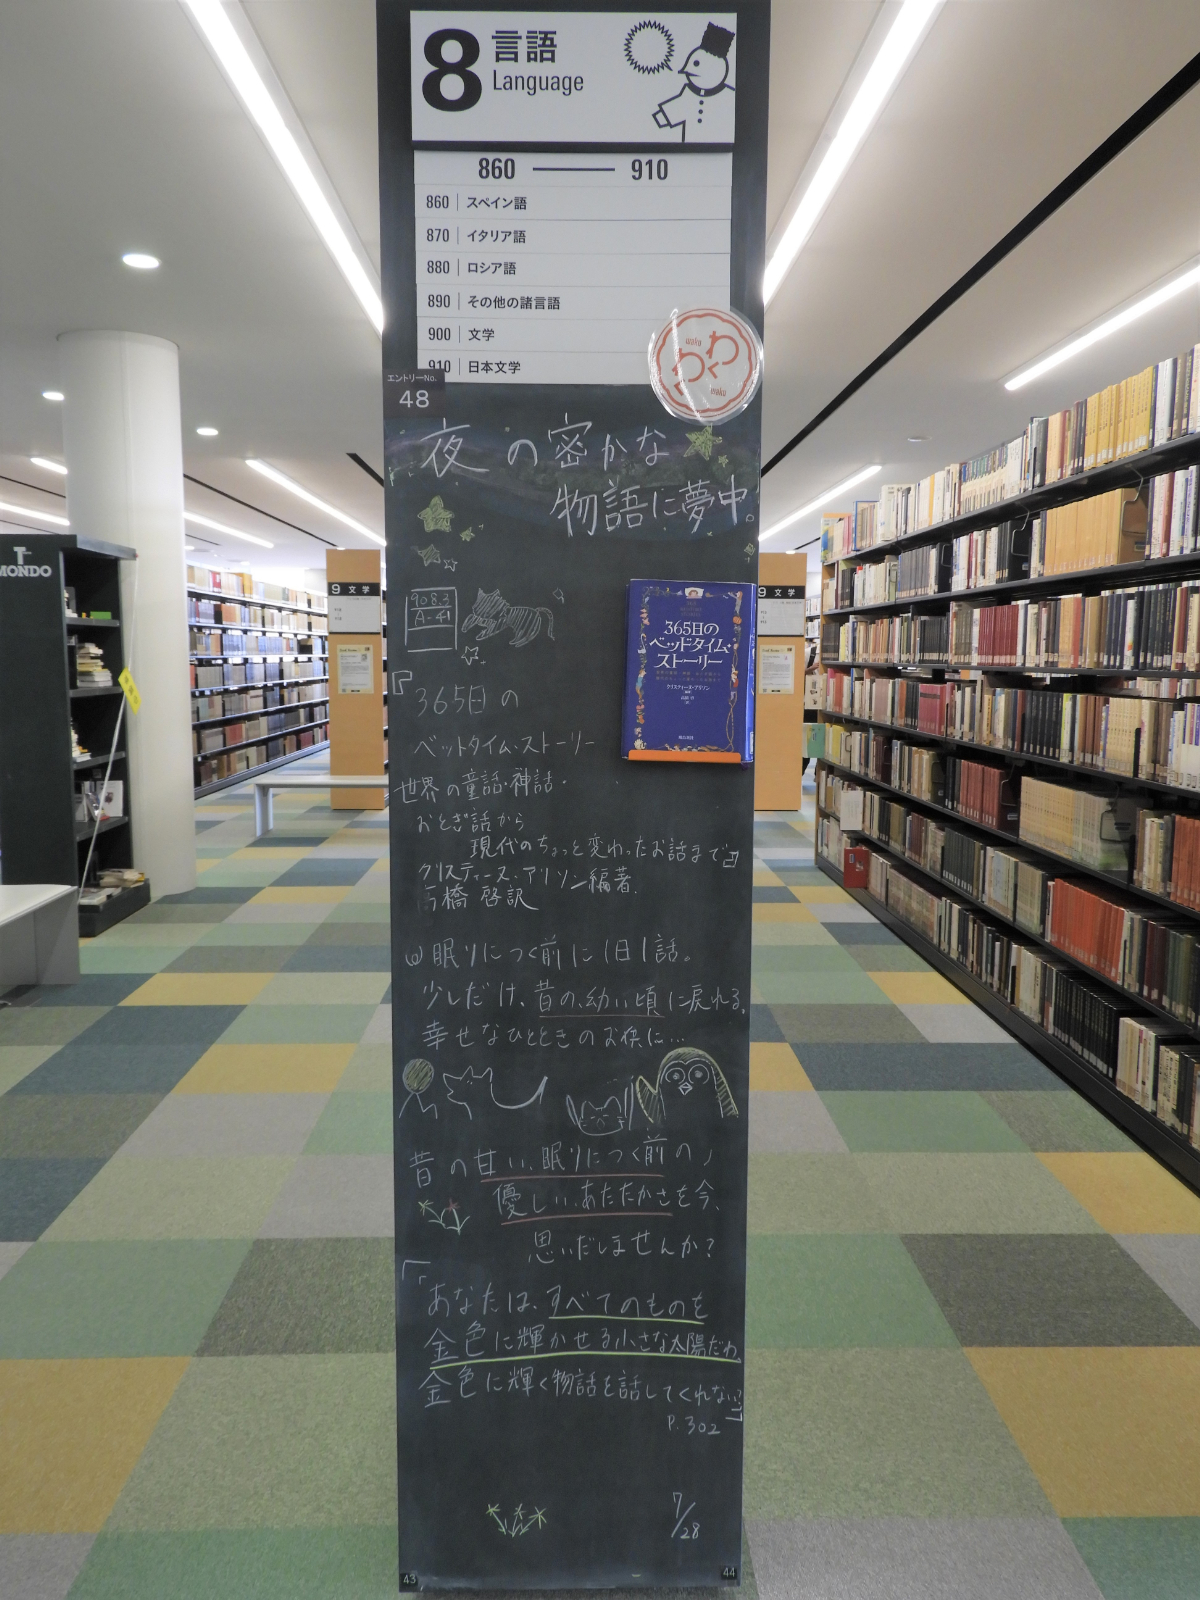 8 言語
Language
860 910
860 スペイン語
870 イタリア語
880 ロシア語
890 その他の諸言語
900 文学
910 日本文学
わくわく
waku
waku
エントリーNo.
48
夜の密かな
物語に夢中。
908.3
A-41
365日の
ベッドタイム・
ストーリー
クリスティーヌ・アリソン
『365日の
ベットタイム・ストーリー
世界の童話・神話・
おとぎ話から
現代のちょっと変わったお話まで』
クリスティーヌ・アリソン編著.
高橋 啓訳
眠りにつく前に1日1話。
少しだけ、昔の、幼い頃に戻れる。
幸せなひとときのお供に…
昔の甘い、眠りにつく前の、
優しい、あたたかさを今、
思いだしませんか?
「あなたは、すべてのものを
金色に輝かせる小さな太陽だわ。
金色に輝く物語を話してくれない?」
P.302
7/28
43
44
MONDO
9 文学
9 文学